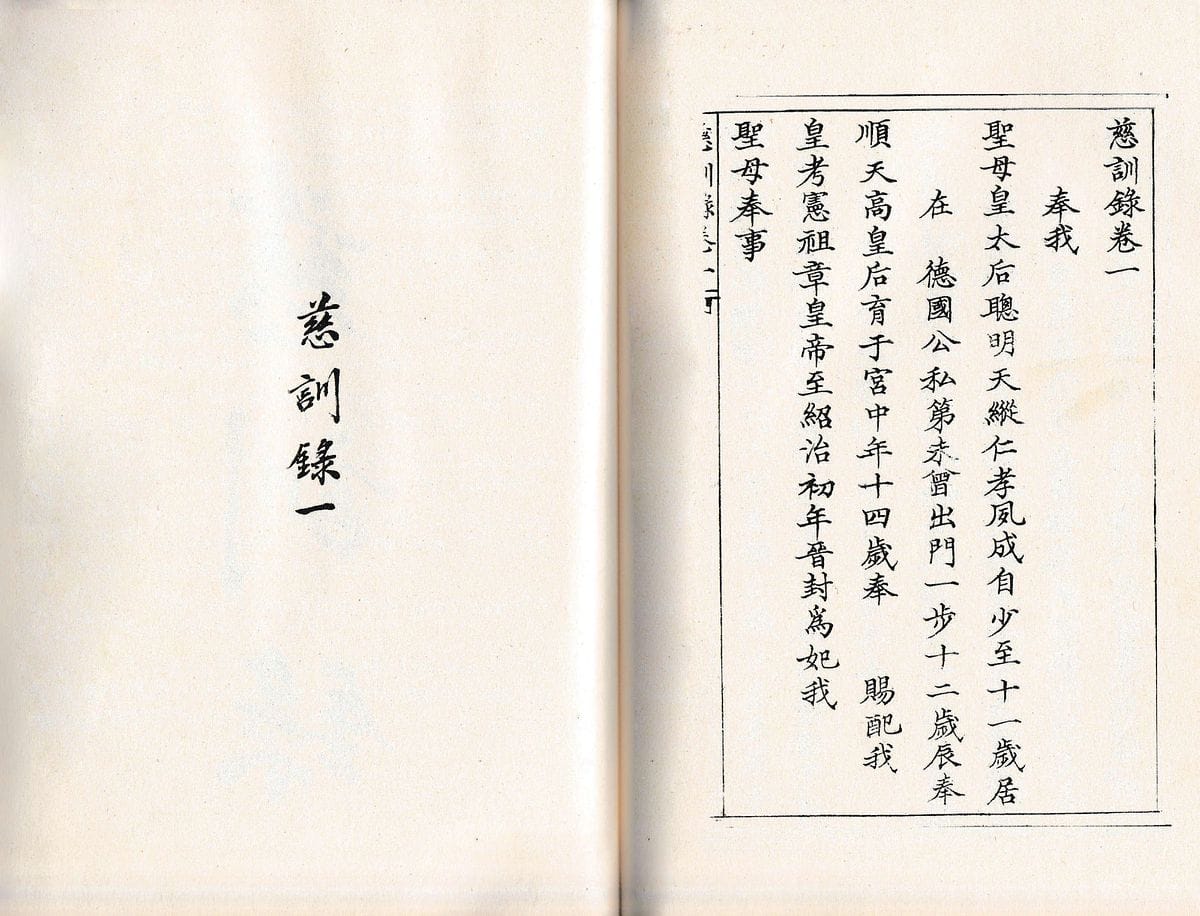 慈訓錄卷一
奉我
聖母皇太后聰明天縱仁孝夙成自少至十一歲居
在 德國公私第未曾出門一步十二歲辰奉
順天高皇后育于宮中年十四歲奉 賜配我
皇考憲祖章皇帝至紹治初年晉封爲妃我
聖母奉事
慈訓錄卷一
慈訓錄一